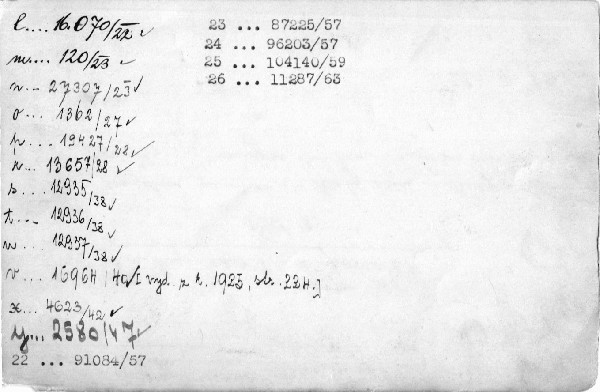 l.... 16.070/22 ✓
m.... 120/23 ✓
n... 27307/23 ✓
o ... 1362/27 ✓
p... 19427/22 ✓
r... 13657/28 ✓
s... 12935/38 ✓
t... 12936/38 ✓
u ... 12937/38 ✓
v ... 16964/40 [I wyd. z r. 1925, str. 224.]
x... 4623/42 ✓
y... 2580/47 ✓
22 ... 91084/57
23 ... 87225/57
24 ... 96203/57
25 ... 104140/59
26 ... 11287/63